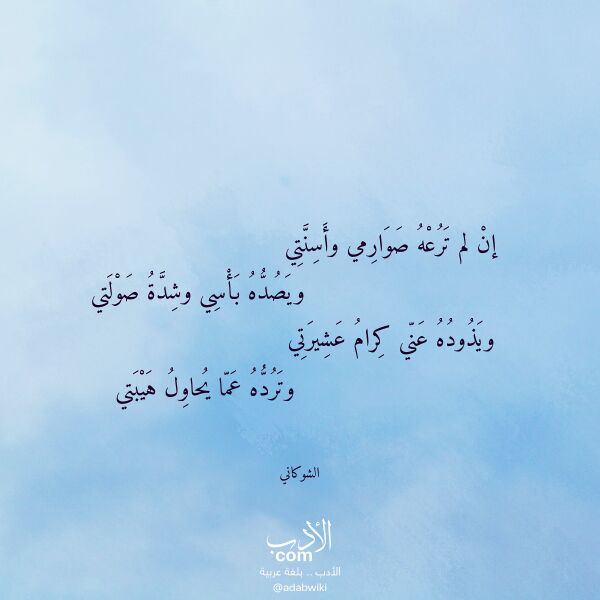 إنْ لم تَرُعْهُ صَوَارِمي وأَسِنَّتِي
ويَصُدُّهُ بَأْسِي وشِدَّةُ صَوْلَتي
ويَذُودُهُ عَنّي كِرامُ عَشِيرَتِي
وتَرُدُّهُ عَمّا يُحاوِلُ هَيْبَتي
الشوكاني
الأدب
com
الأدب .. بلغة عربية
@adabwiki